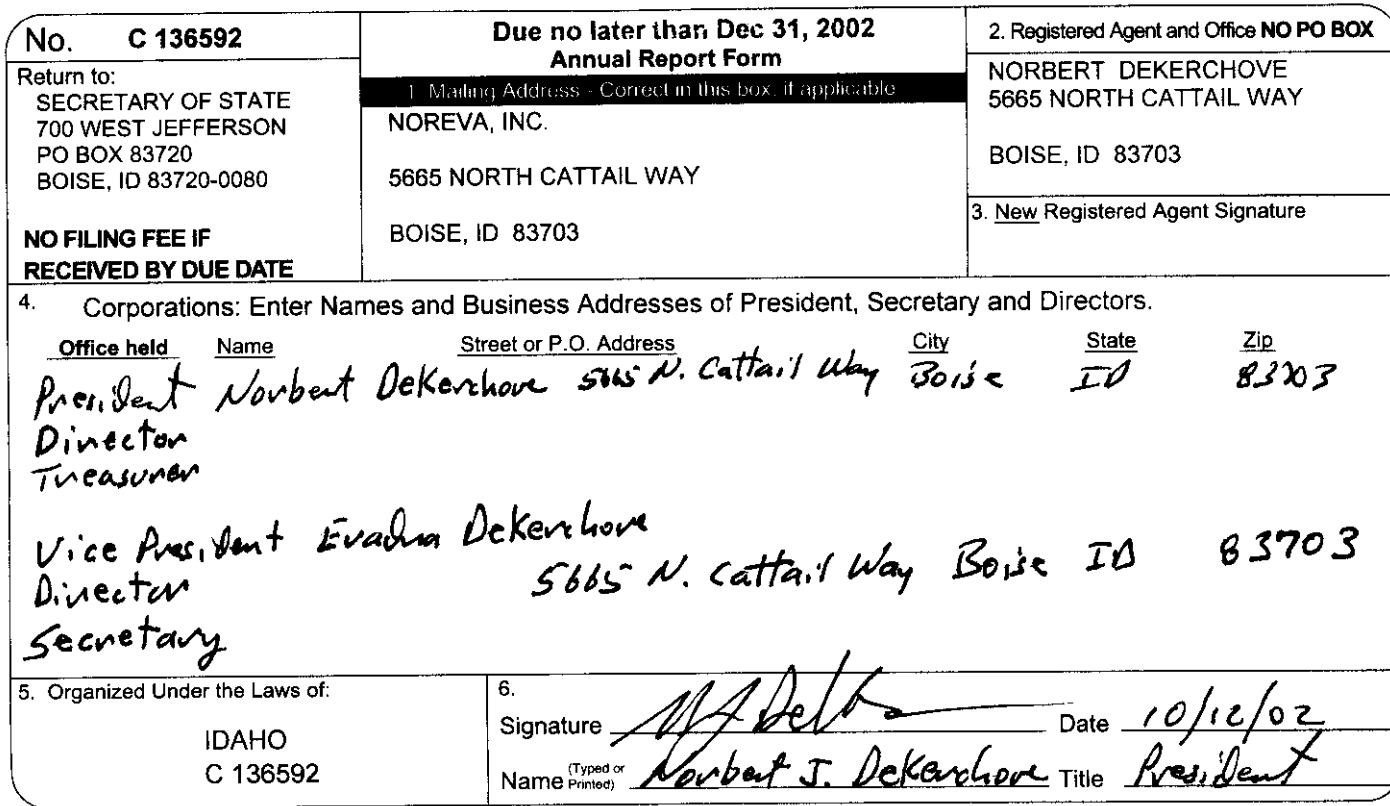 No. C 136592
Return to:
SECRETARY OF STATE
700 WEST JEFFERSON
PO BOX 83720
BOISE, ID 83720-0080
NO FILING FEE IF
RECEIVED BY DUE DATE
Due no later than Dec 31, 2002
Annual Report Form
1. Mailing Address - Correct in this box, if applicable
NOREVA, INC.
5665 NORTH CATTAIL WAY
BOISE, ID 83703
2. Registered Agent and Office NO PO BOX
NORBERT DEKERCHOVE
5665 NORTH CATTAIL WAY
BOISE, ID 83703
3. New Registered Agent Signature
4. Corporations: Enter Names and Business Addresses of President, Secretary and Directors.
Office held Name Street or P.O. Address City State Zip
President Norbert DeKerchove 5665 N. Cattail Way Boise ID 83703
Director
Treasurer
Vice President Evadna DeKerchove
Director 5665 N. Cattail Way Boise ID 83703
Secretary
5. Organized Under the Laws of:
IDAHO
C 136592
6.
Signature Date 10/12/02
Name (Typed or Printed) Norbert J. DeKerchove Title President